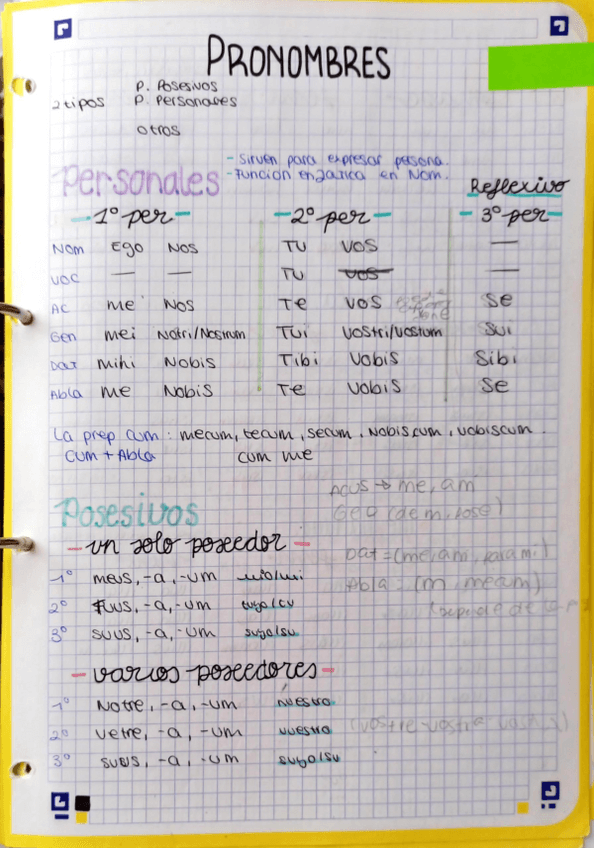 PRONOMBRES
P. Posesivos
2 tipos P. Personales
otros
Personales
- Sirven para expresar persona.
- Función enfática en Nom.
Reflexivo
1º per 2º per 3º per
Nom Ego Nos Tu Vos —
Voc — — Tu Vos —
Ac me Nos Te Vos Se
Gen mei Notri/Nostrum Tui Vostri/Vostum Sui
Dat mihi Nobis Tibi Vobis Sibi
Abla me Nobis Te Vobis Se
La prep cum: mecum, tecum, secum, Nobiscum, vobiscum.
cum + Abla cum me
Acus → me, am
Posesivos
- un solo poseedor -
1º meus, -a, -um mio/mi
2º Tuus, -a, -um tuyo/tu
3º suus, -a, -um suyo/su
Abla
- varios poseedores -
1º Notre, -a, -um nuestro
2º Vetre, -a, -um vuestro
3º suus, -a, -um suyo/su